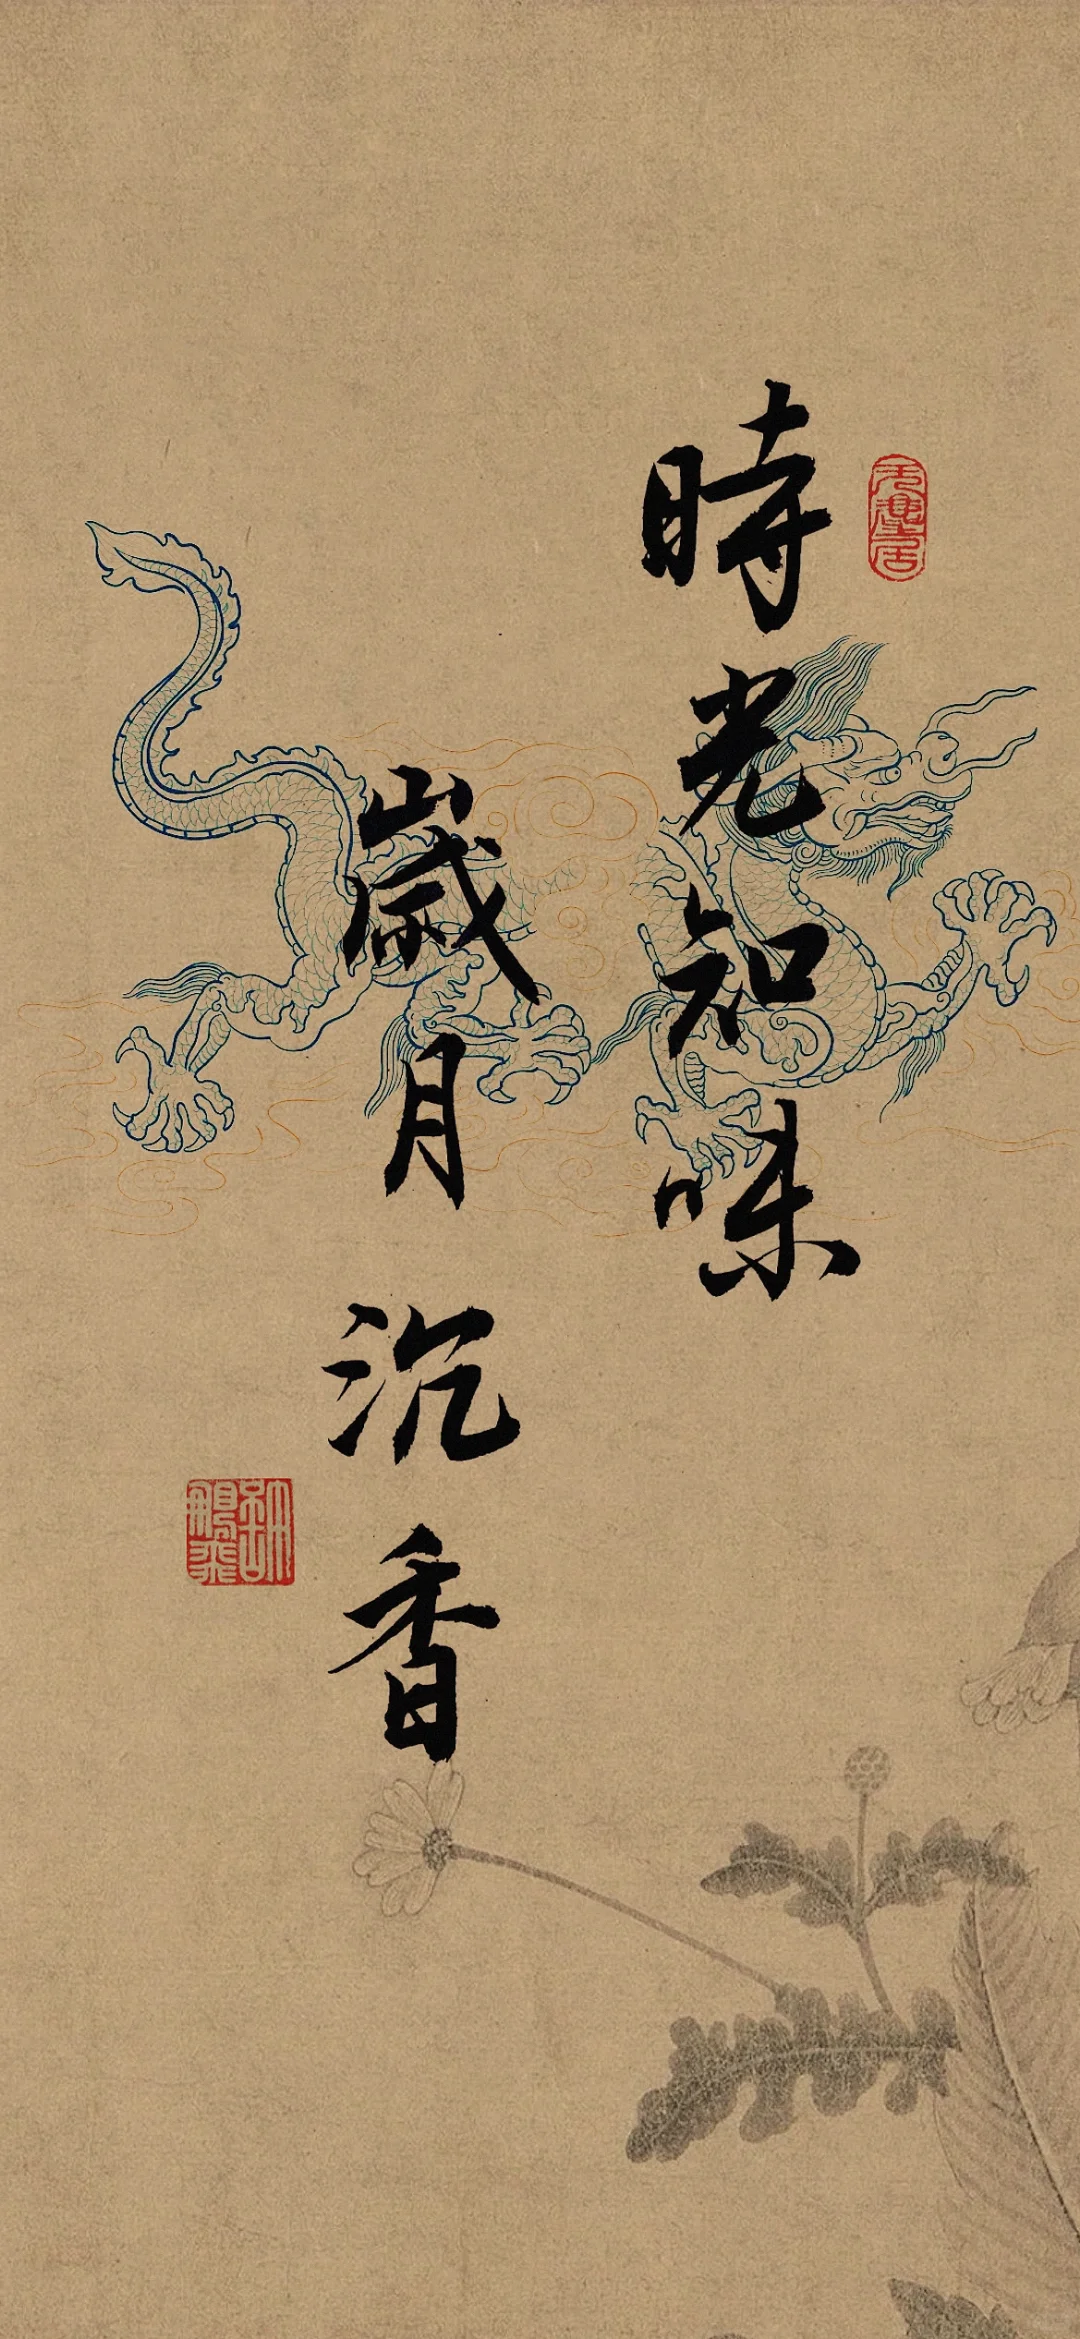 時光知味
歲月沉香